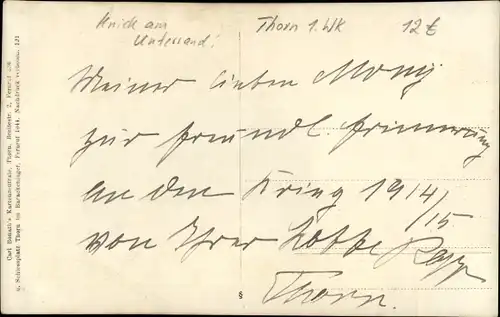 Knick am
Unterrand!
Thorn 1. WK
12€
Meiner lieben Mony
zur freundl. Erinnerung
an den Krieg 1914/15
von Ihrer Lotte Rapp
Thorn.
Carl Bonath's Kartenzentrale, Thorn, Breitestr. 2, Fernruf
u. Schiessplatz Thorn im Barackenlager, Fernruf 1044. Nachdruck verboten. 121